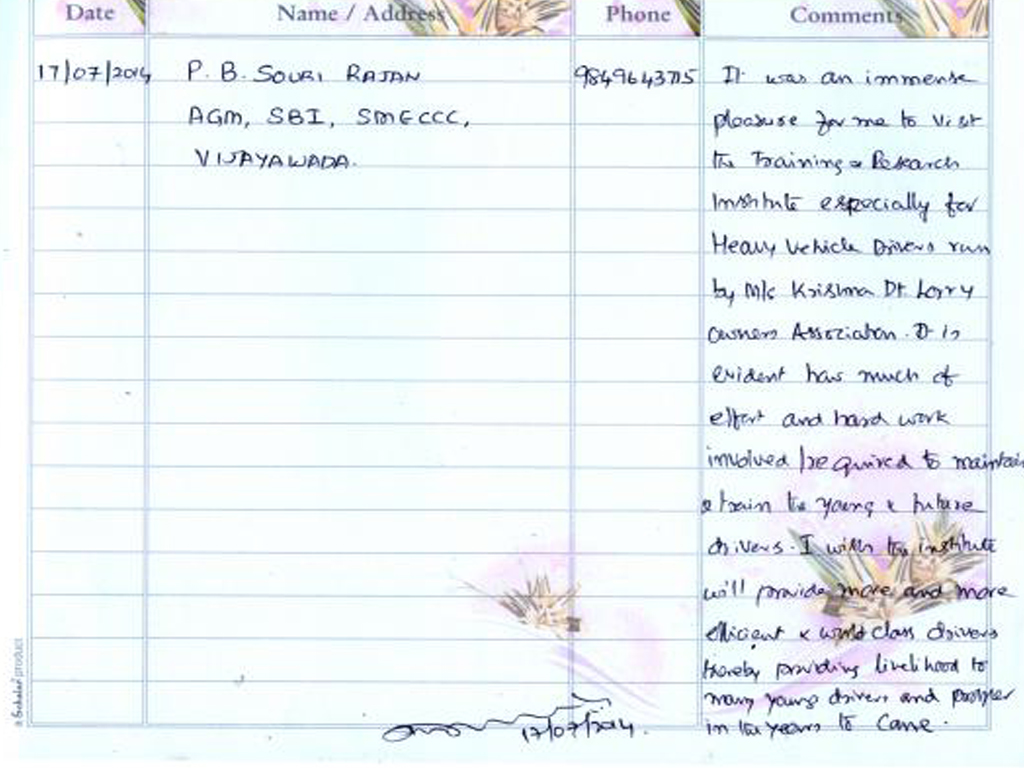 Date Name / Address Phone Comments
17/07/2014 P. B. SOURI RAJAN 9849643715 It was an immense
AGM, SBI, SMECCC, pleasure for me to visit
VIJAYAWADA. the Training & Research
Institute especially for
Heavy Vehicle Drivers run
by M/s Krishna Dt. Lorry
owners Association. It is
evident has much of
effort and hard work
involved / required to maintain
& train the young & future
drivers. I wish the institute
will provide more and more
efficient & world class drivers
thereby providing livelihood to
many young drivers and prosper
in the years to come.
17/07/2014.
a Scholar product